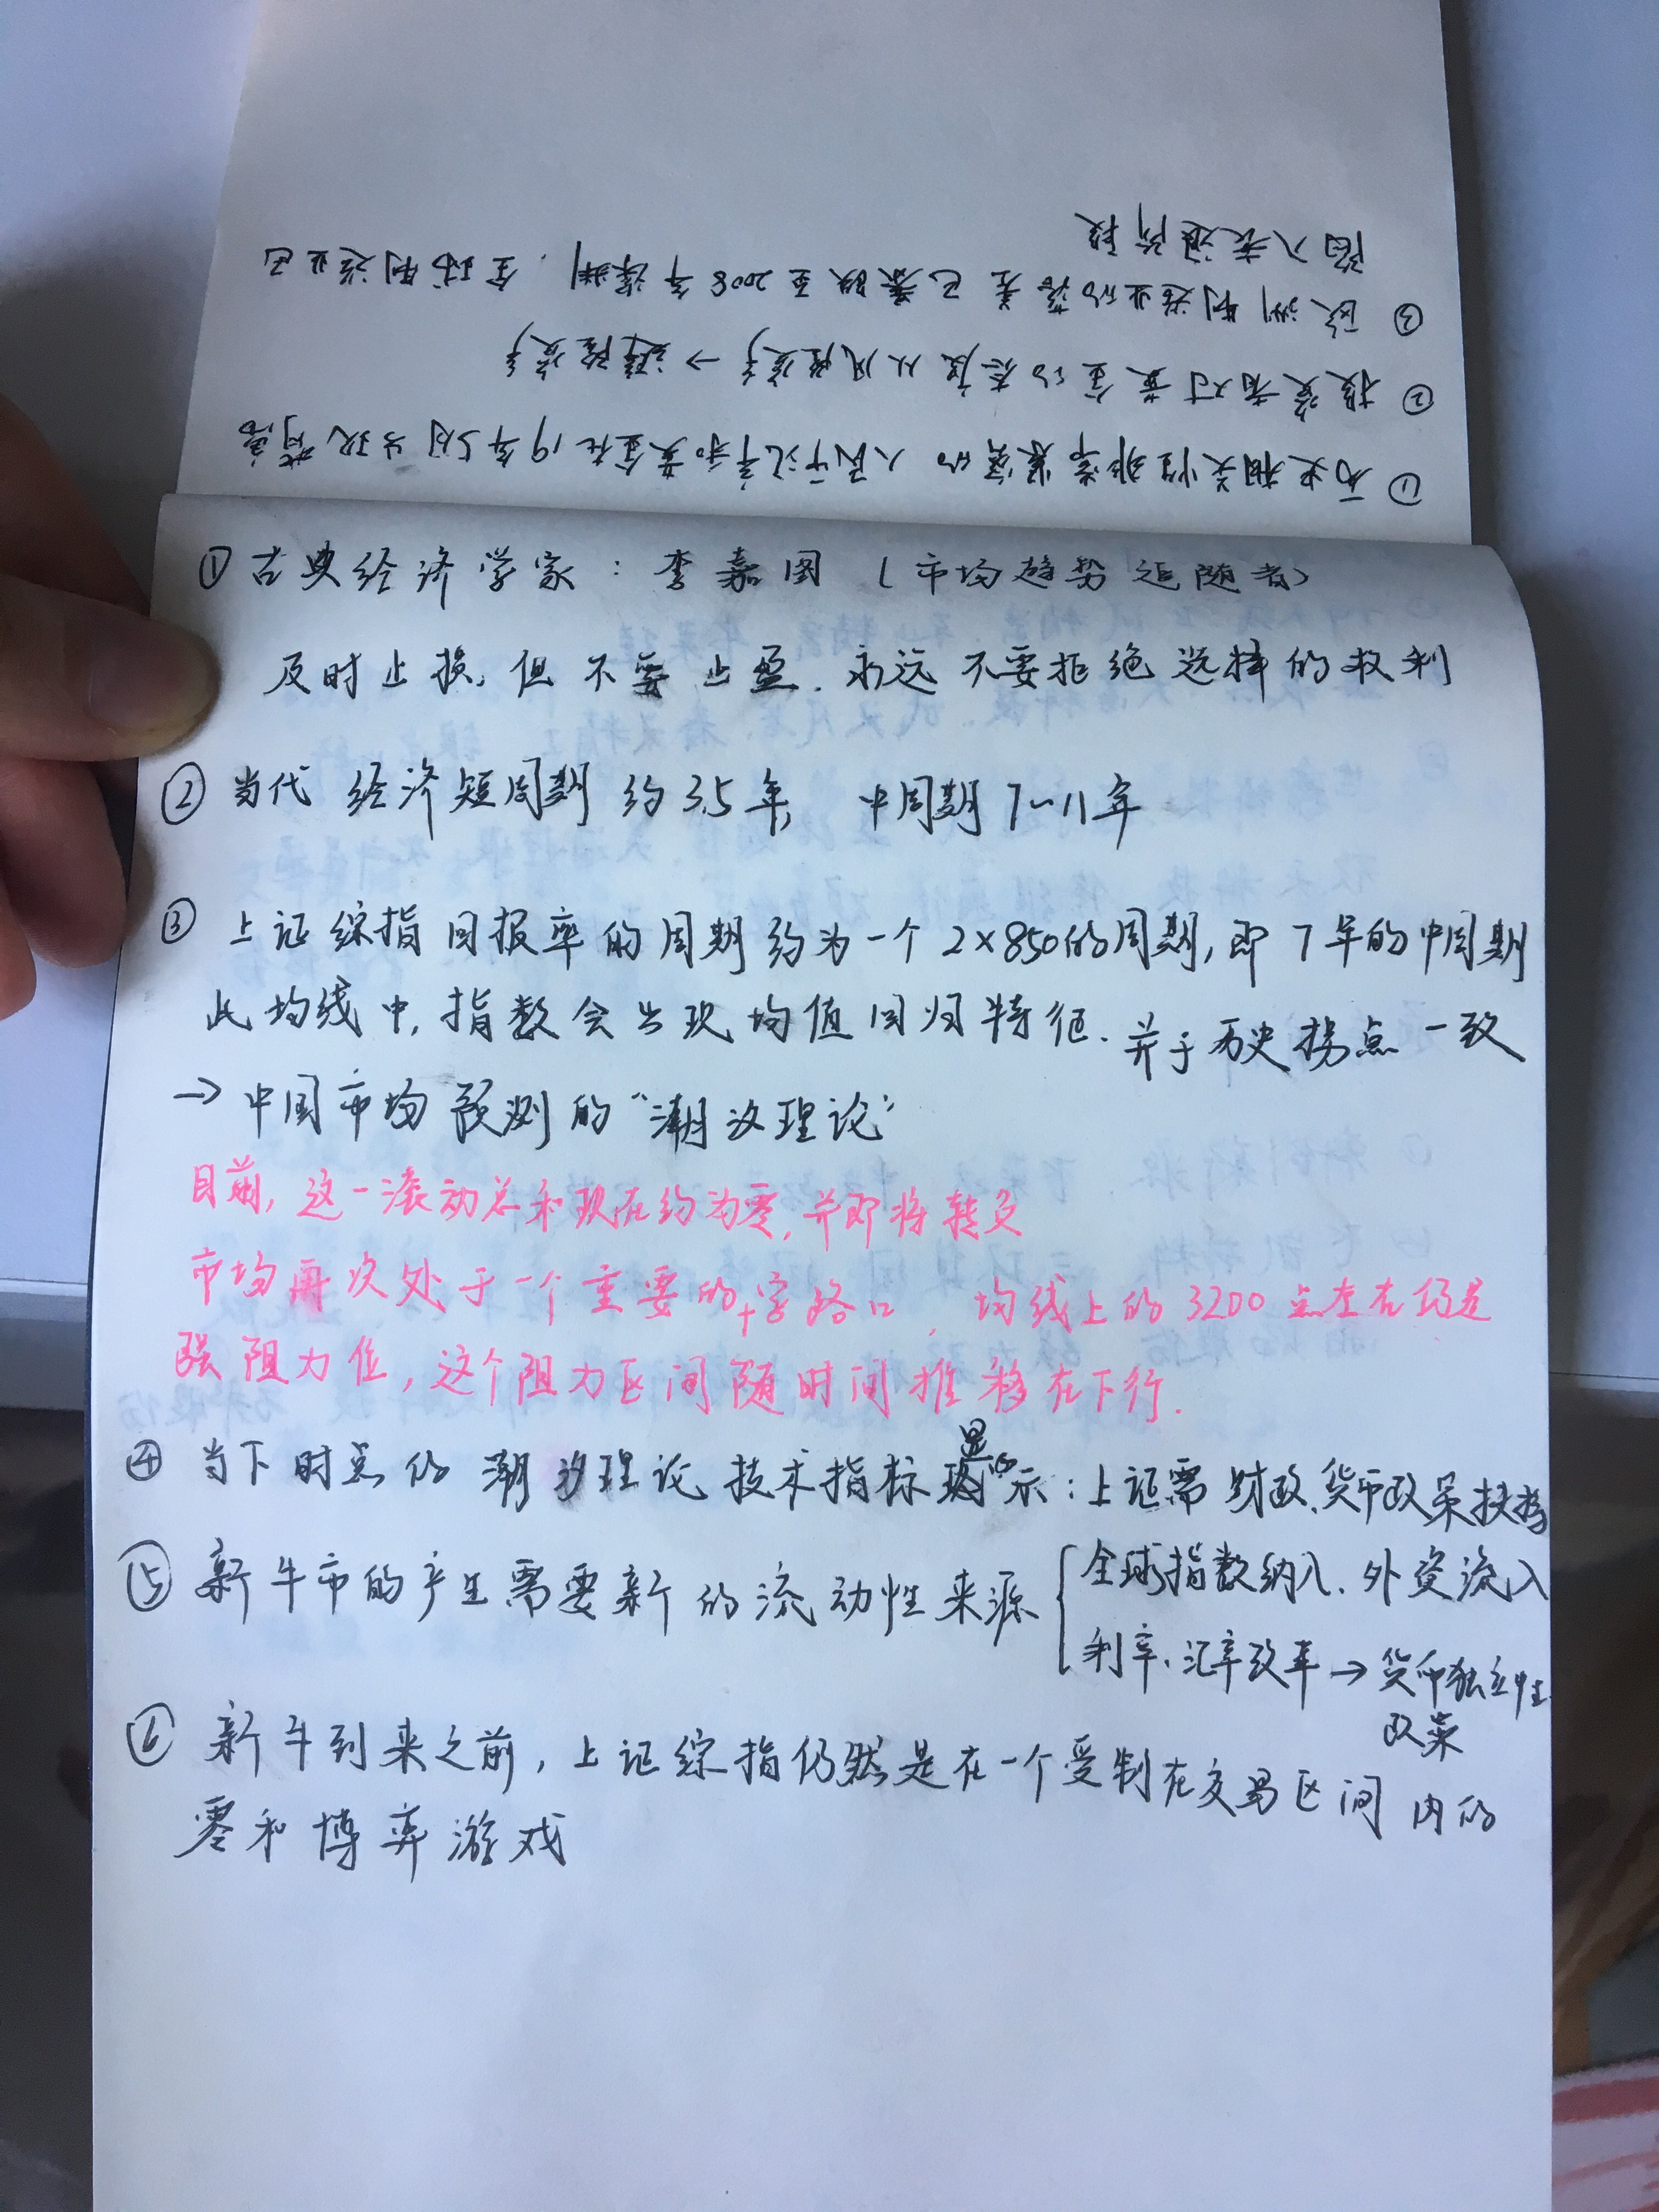 ①历史相关性非常紧密的人民币汇率和黄金在19年5月出现背离
②投资者对黄金的态度从风险资产→避险资产
③欧洲制造业的落差已暴跌至2008年深渊.全球制造业已
陷入衰退阶段
①古典经济学家:李嘉图(市场趋势追随者)
及时止损,但不要止盈.永远不要拒绝选择的权利
②当代经济短周期约3.5年,中周期7~11年
③上证综指回报率的周期约为一个2×850的周期,即7年的中周期
此均线中,指数会出现均值回归特征.并于历史拐点一致
→中国市场预测的“潮汐理论”
目前,这一滚动总和现在约为零,并即将转负
市场再次处于一个重要的十字路口,均线上的3200点左右仍是
强阻力位,这个阻力区间随时间推移在下行.
④当下时点的潮汐理论技术指标显示:上证需财政、货币政策扶持
⑤新牛市的产生需要新的流动性来源
全球指数纳入、外资流入
利率、汇率改革→货币独立性
政策
⑥新牛到来之前,上证综指仍然是在一个受制在交易区间内的
零和博弈游戏